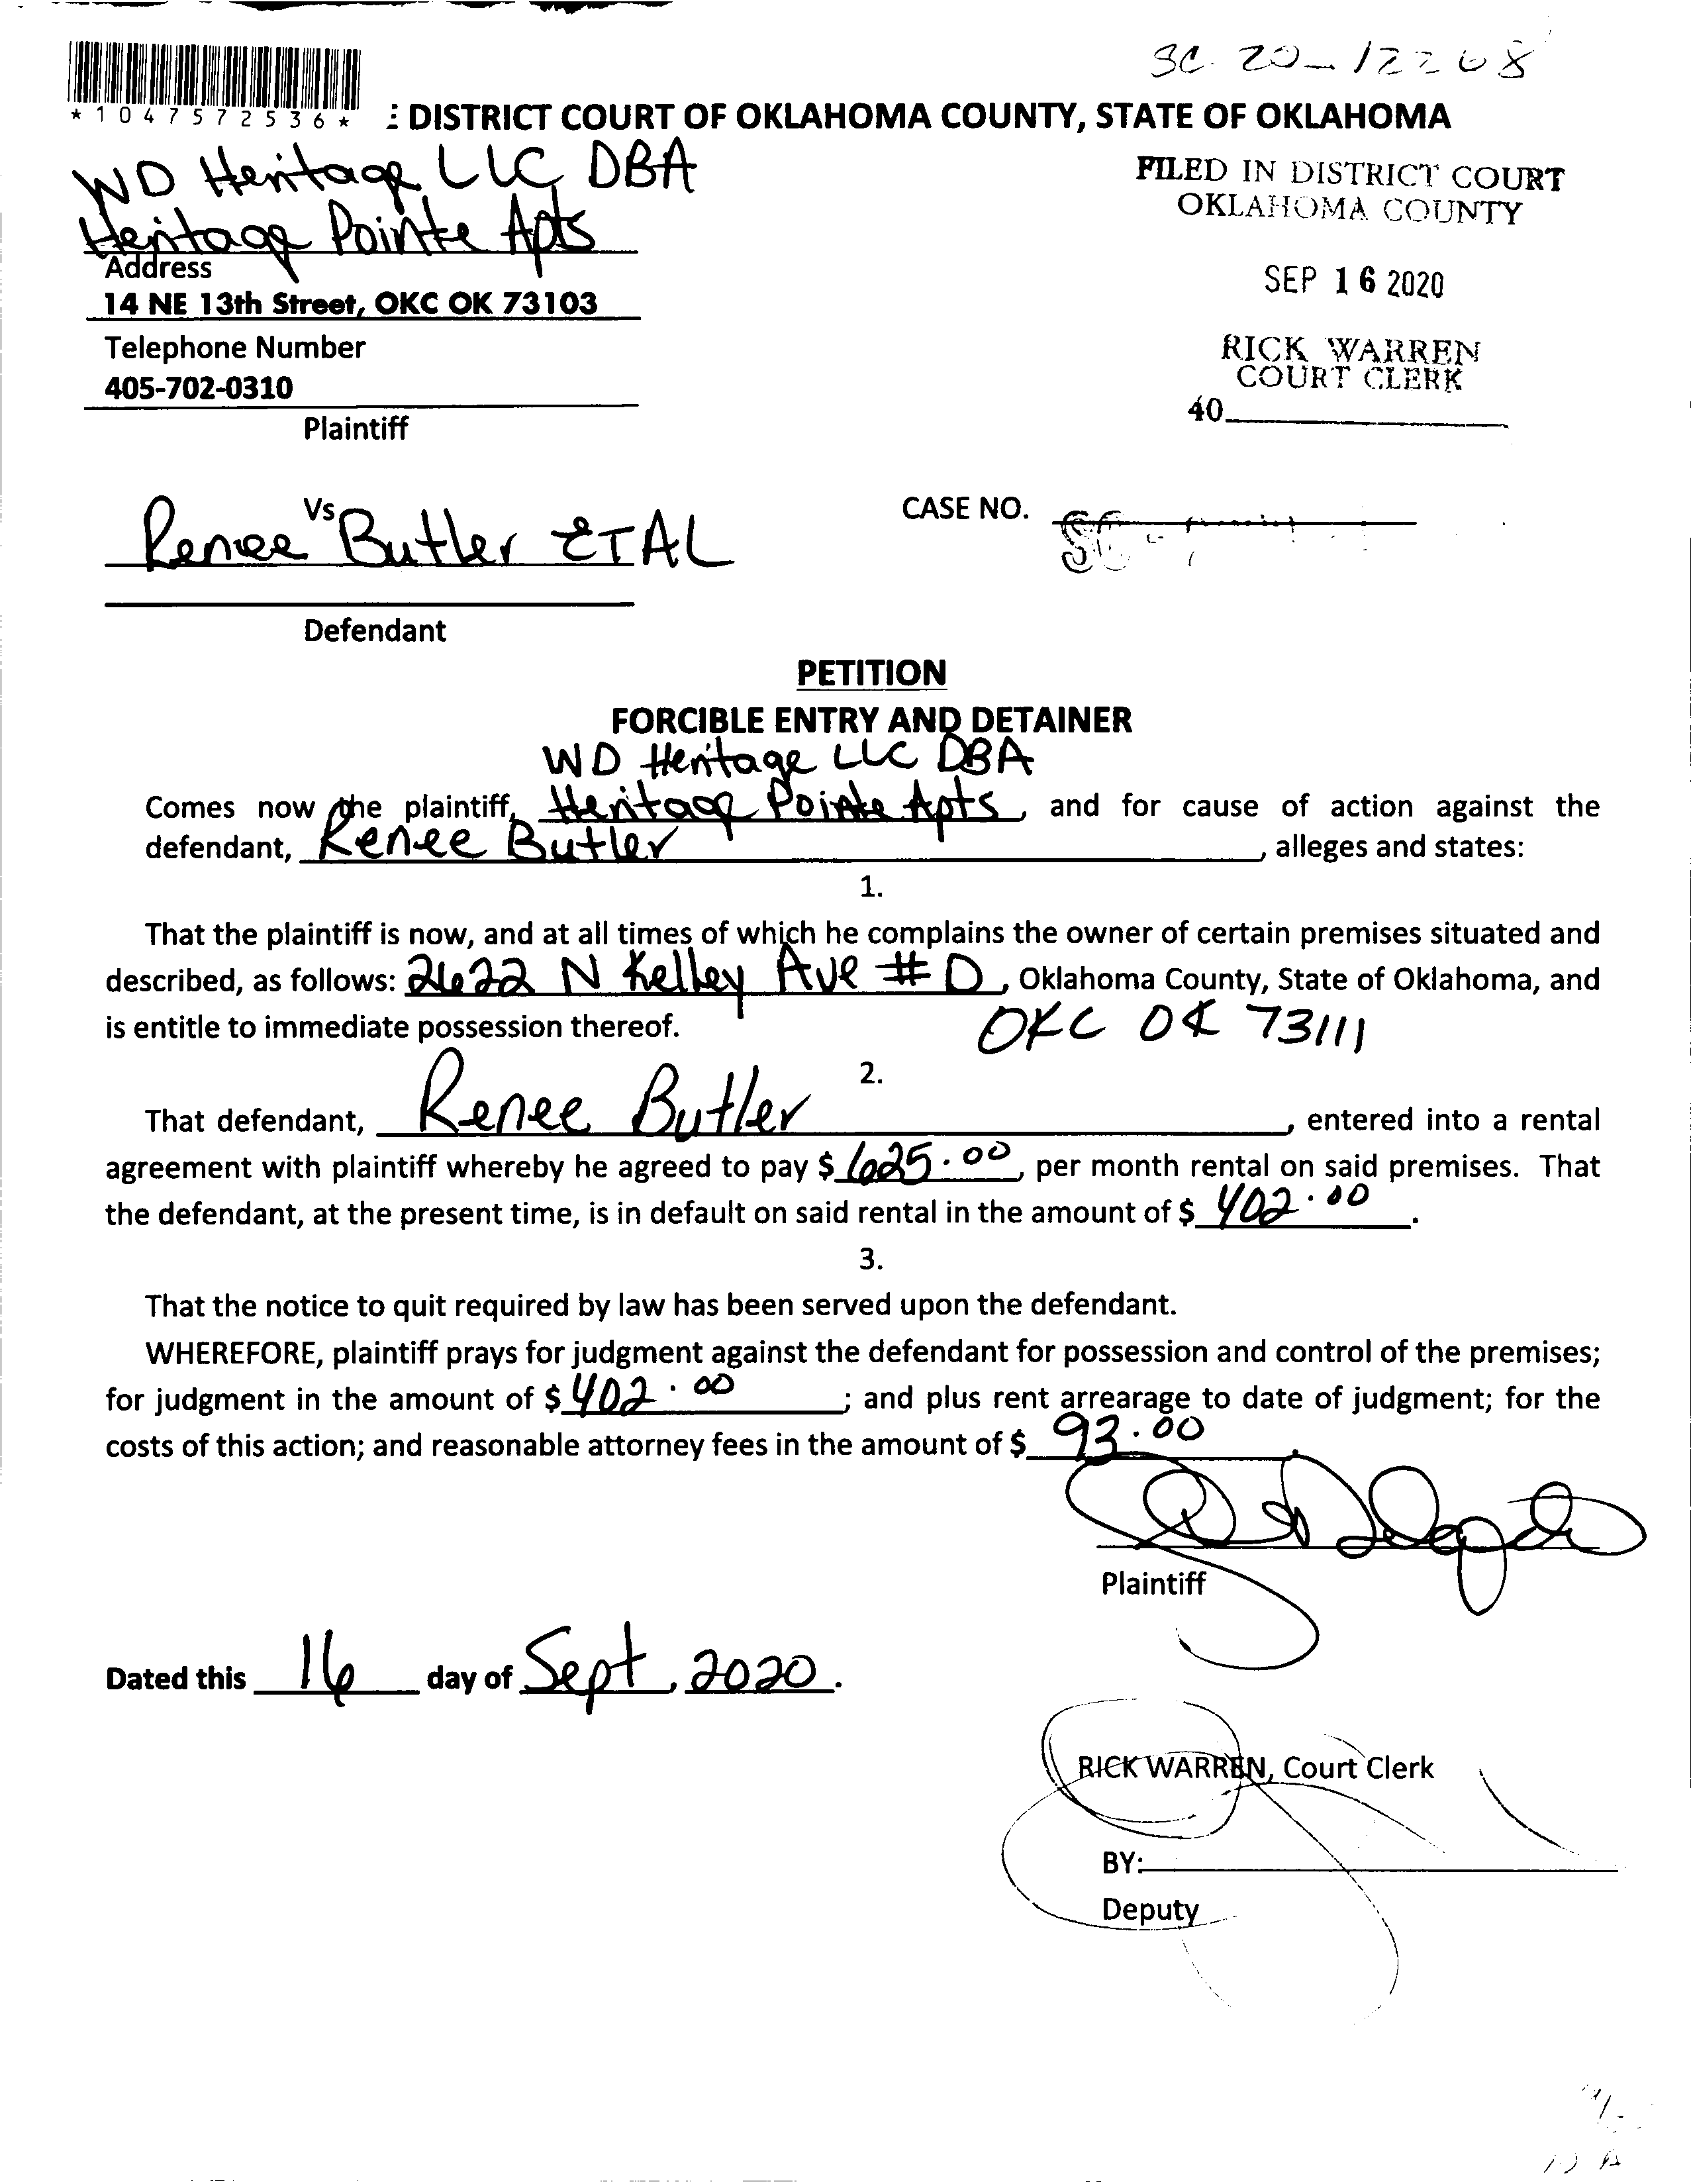 SC-20-12268
*1047572536*
: DISTRICT COURT OF OKLAHOMA COUNTY, STATE OF OKLAHOMA
WD Heritage LLC DBA
Heritage Pointe Apts
FILED IN DISTRICT COURT
OKLAHOMA COUNTY
Address
14 NE 13th Street, OKC OK 73103
SEP 16 2020
Telephone Number
405-702-0310
RICK WARREN
COURT CLERK
40
Plaintiff
Vs
Renee Butler ETAL
CASE NO.
Defendant
PETITION
FORCIBLE ENTRY AND DETAINER
WD Heritage LLC DBA
Comes now the plaintiff, Heritage Pointe Apts, and for cause of action against the
defendant, Renee Butler, alleges and states:
1.
That the plaintiff is now, and at all times of which he complains the owner of certain premises situated and
described, as follows: 2622 N Kelley Ave # D, Oklahoma County, State of Oklahoma, and
is entitle to immediate possession thereof. OKC OK 73111
2.
That defendant, Renee Butler, entered into a rental
agreement with plaintiff whereby he agreed to pay $ 625.00, per month rental on said premises. That
the defendant, at the present time, is in default on said rental in the amount of $ 402.00.
3.
That the notice to quit required by law has been served upon the defendant.
WHEREFORE, plaintiff prays for judgment against the defendant for possession and control of the premises;
for judgment in the amount of $ 402.00; and plus rent arrearage to date of judgment; for the
costs of this action; and reasonable attorney fees in the amount of $ 93.00
Plaintiff
Dated this 16 day of Sept, 2020.
RICK WARREN, Court Clerk
BY:
Deputy